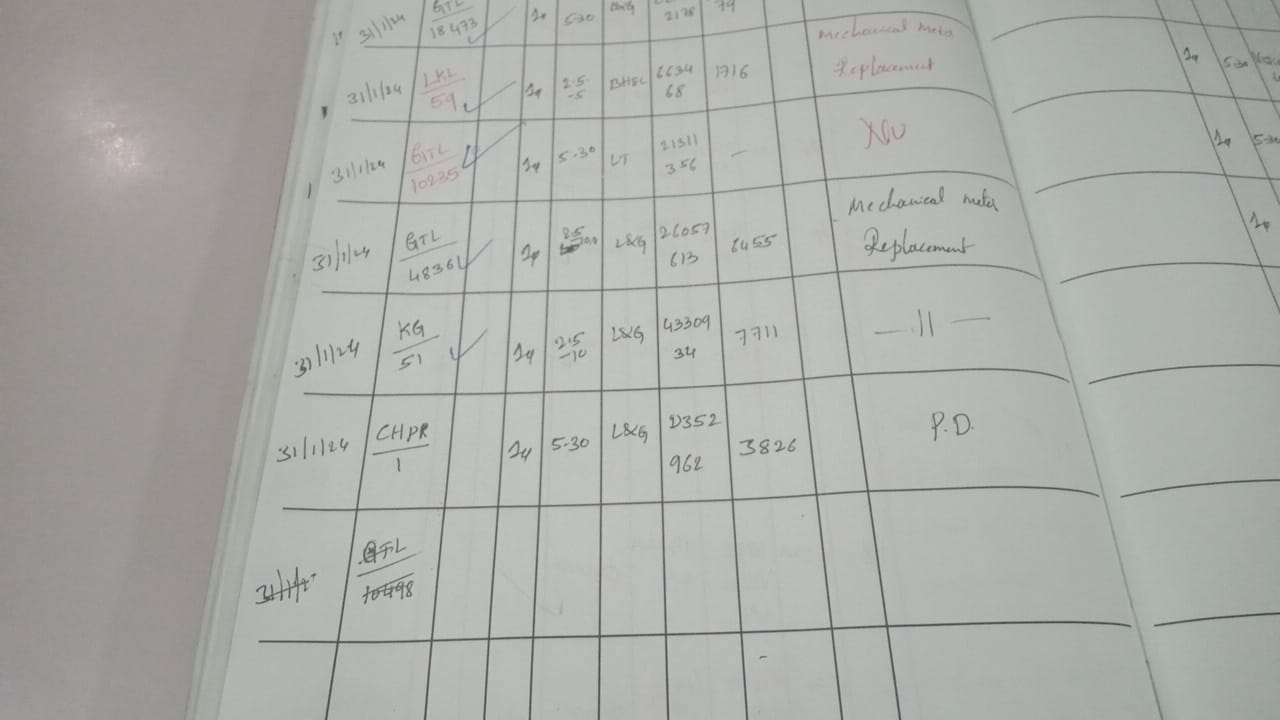 31/1/24 GTL 18473 1φ 5-30 2178 79
31/1/24 LKL 59 1φ 2.5-5 BHEL 6634 68 1716 Mechanical meter Replacement
31/1/24 GTL 10235 1φ 5-30 LT 21311 356 —
31/1/24 GTL 4836 1φ L&G 26057 613 6455 Mechanical meter Replacement
31/1/24 KG 51 1φ 2.5-10 L&G 43309 34 7711 —11—
31/1/24 CHPR 1 1φ 5-30 L&G D352 962 3826 P.D.
GTL 10498
1φ 5-30
1φ 5-30
1φ